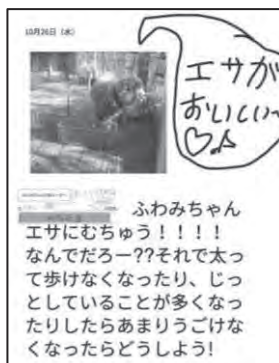 10月26日（水）
エサが
おいしい〜
♡♪
ふわみちゃん
エサにむちゅう！！！！
なんでだろー??それで太っ
て歩けなくなったり、じっ
としていることが多くなっ
たりしたらあまりうごけな
くなったらどうしよう!